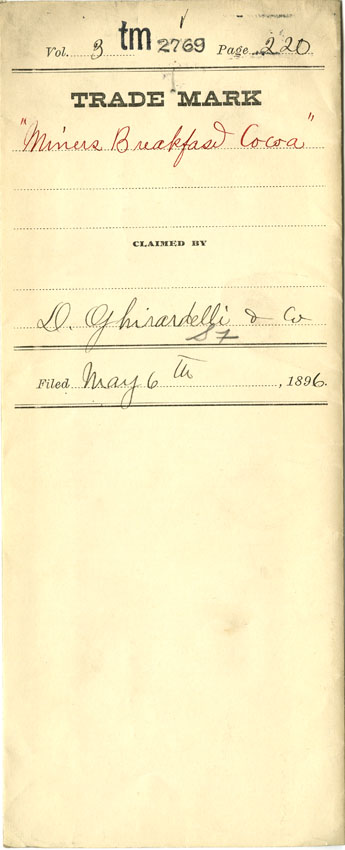 Vol. 3 tm 2769 Page 220
TRADE MARK
"Miners Breakfast Cocoa"
CLAIMED BY
D. Ghirardelli & Co
SF
Filed May 6th, 1896.